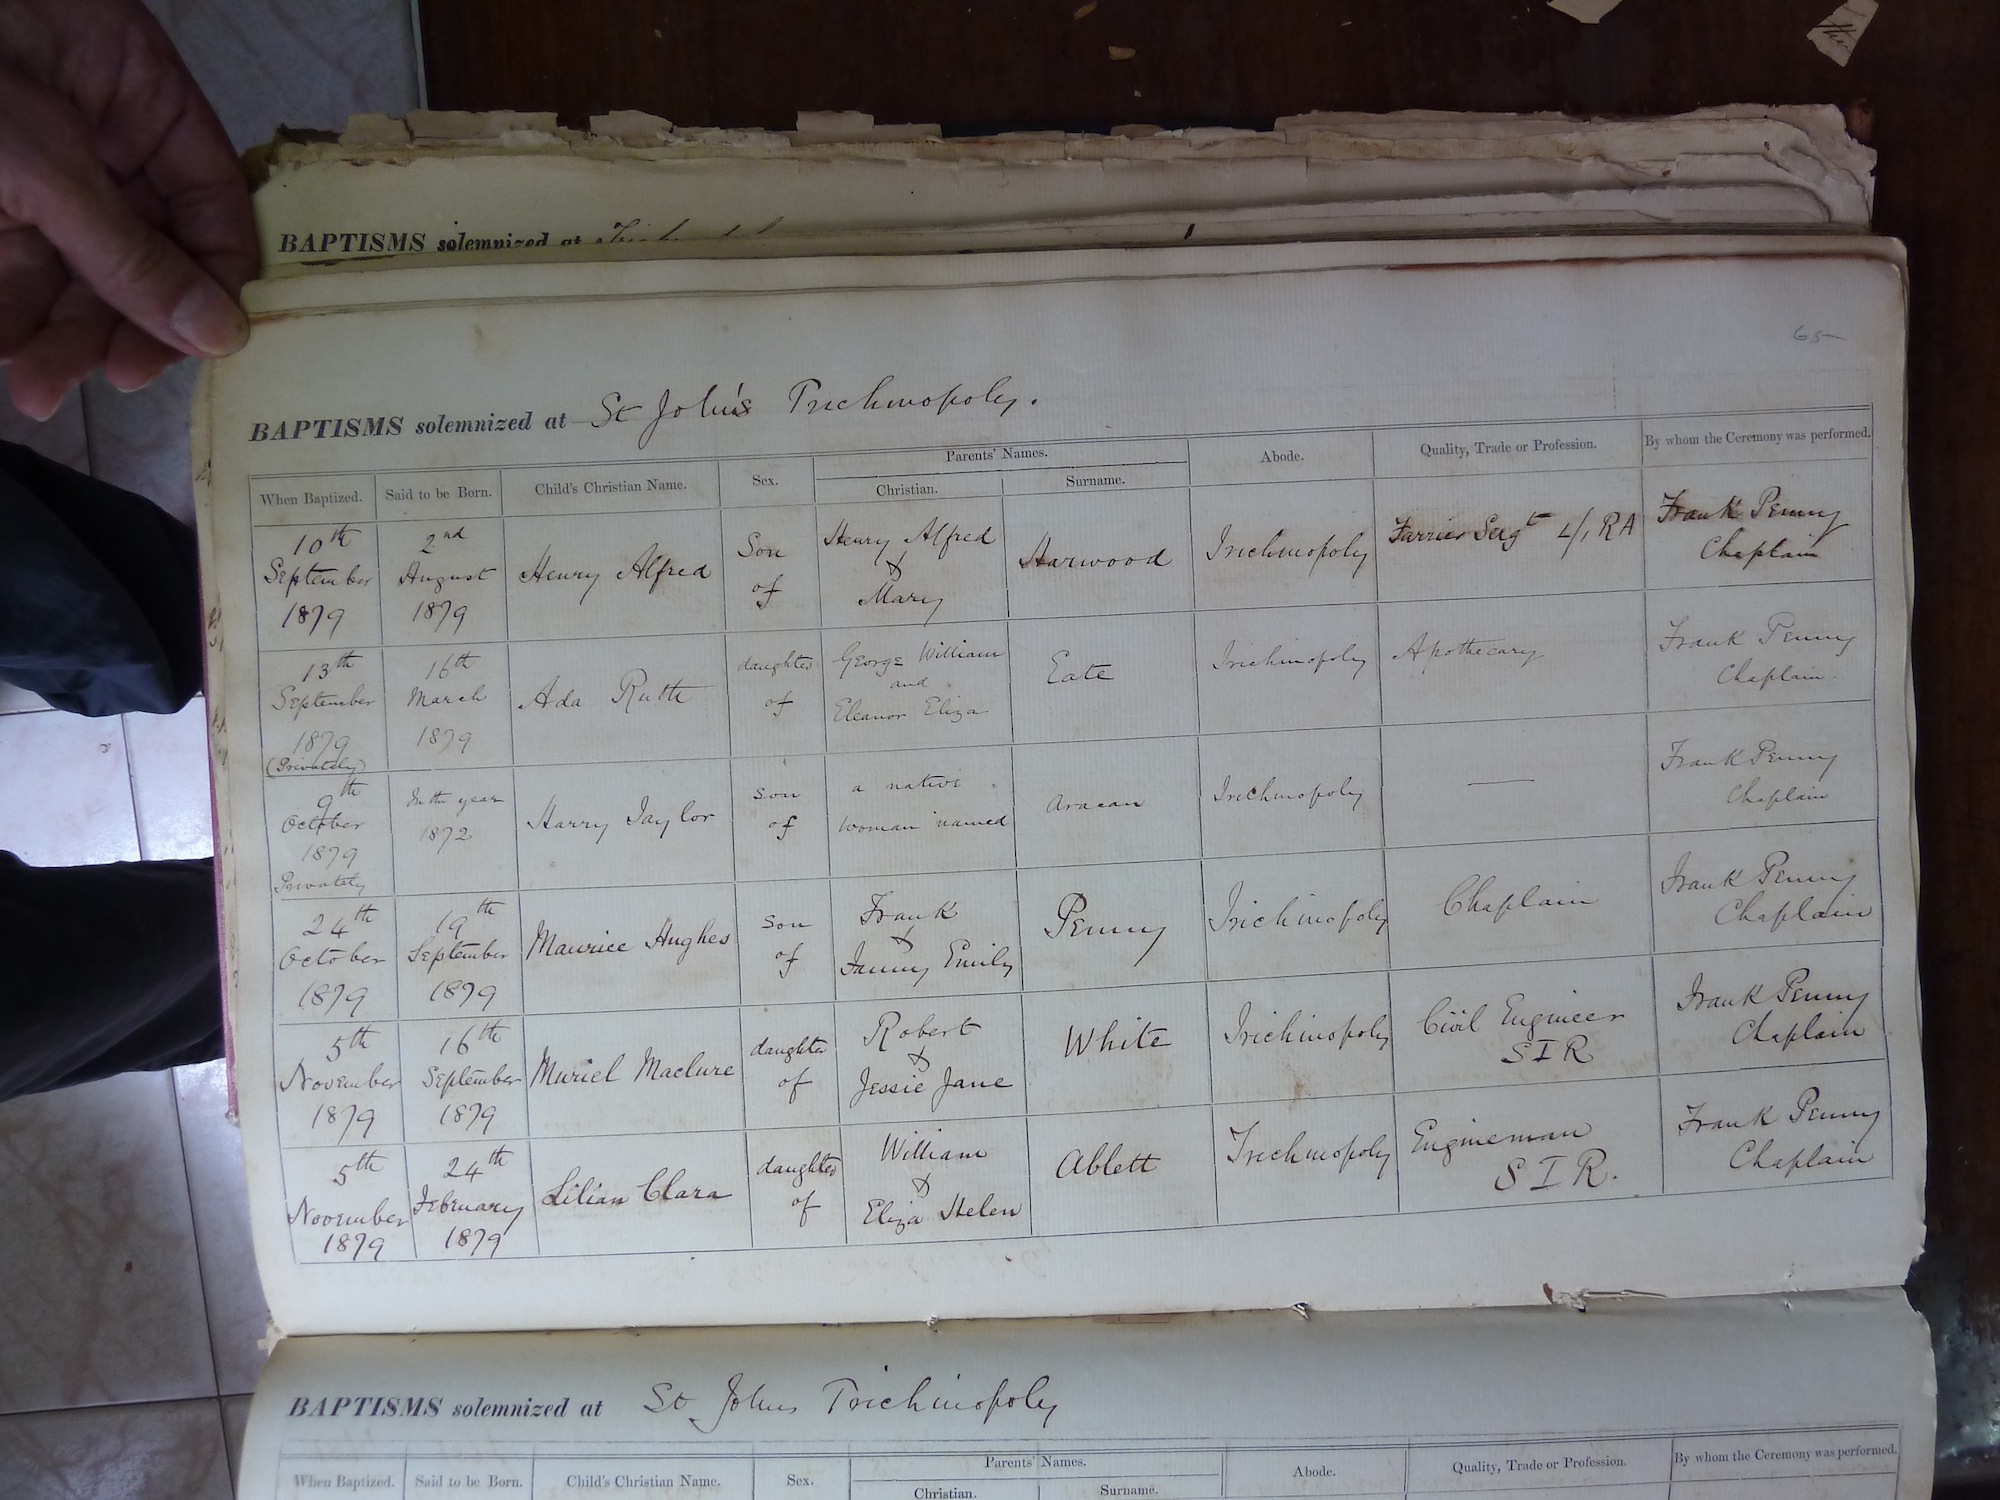 BAPTISMS solemnized at
65
BAPTISMS solemnized at St John's Trichinopoly.
When Baptized. Said to be Born. Child's Christian Name. Sex. Parents' Names. Christian. Surname. Abode. Quality, Trade or Profession. By whom the Ceremony was performed.
10th September 1879 2nd August 1879 Henry Alfred Son of Henry Alfred & Mary Harwood Trichinopoly Farrier Sergt 4/1 RA Frank Penny Chaplain
13th September 1879 (Privately) 16th March 1879 Ada Ruth daughter of George William and Eleanor Eliza Eate Trichinopoly Apothecary Frank Penny Chaplain.
9th October 1879 Privately In the year 1872 Harry Taylor son of a native woman named Aracan Trichinopoly — Frank Penny Chaplain
24th October 1879 19th September 1879 Maurice Hughes son of Frank & Fanny Emily Penny Trichinopoly Chaplain Frank Penny Chaplain
5th November 1879 16th September 1879 Muriel Maclure daughter of Robert & Jessie Jane White Trichinopoly Civil Engineer S I R Frank Penny Chaplain
5th November 1879 24th February 1879 Lilian Clara daughter of William & Eliza Helen Ablett Trichinopoly Engineman S I R. Frank Penny Chaplain
BAPTISMS solemnized at St Johns Trichinopoly
When Baptized. Said to be Born. Child's Christian Name. Sex. Parents' Names. Christian. Surname. Abode. Quality, Trade or Profession. By whom the Ceremony was performed.